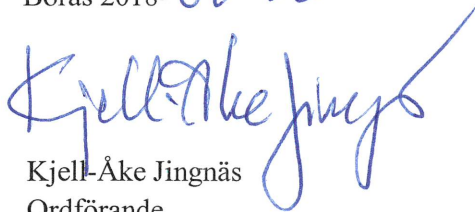 Borås 2018
Kjell-Åke Jingnäs
Kjell-Åke Jingnäs
Ordförande